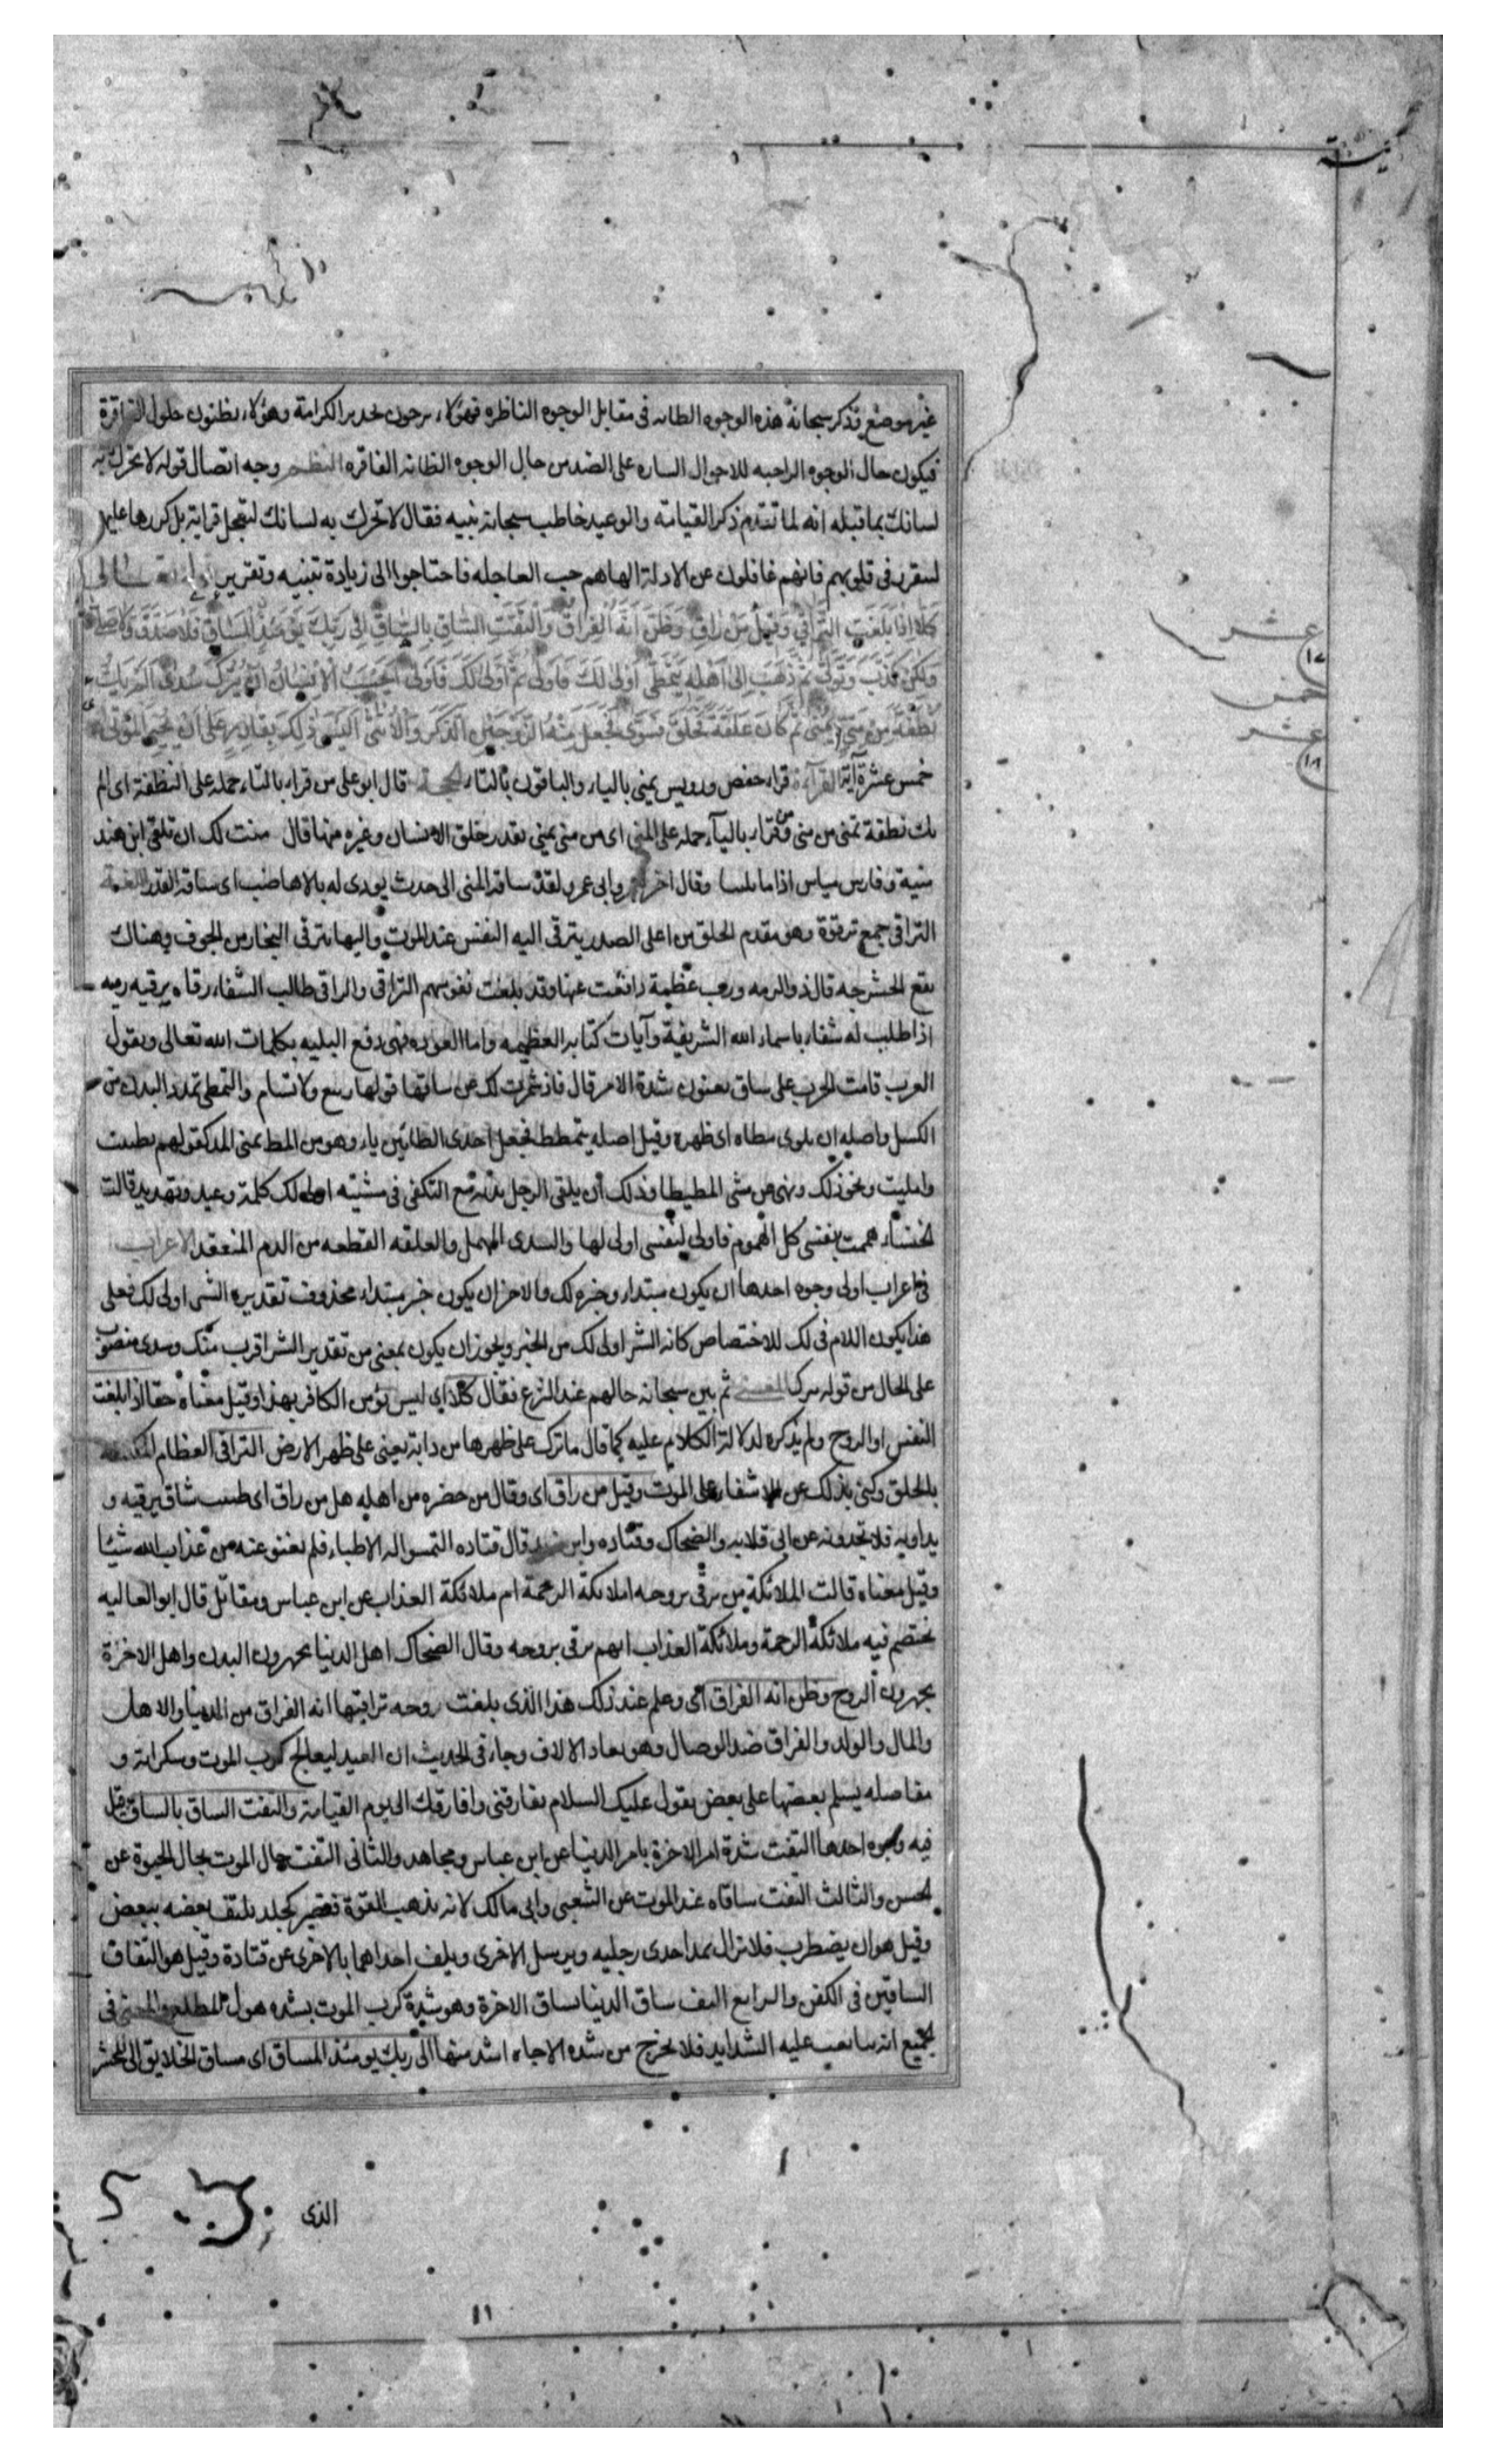 غير موضع فذكر سبحانه هذه الوجوه الظانه فى مقابل الوجوه الناظره فهؤلاء يرجون تجديد الكرامة وهؤلاء يظنون حلول الفاقرة
فيكون حال الوجوه الراجيه للاحوال الساره على الضد من حال الوجوه الظانه الفاقره النظم وجه اتصال قوله لا تحرك به
لسانك بما قبله انه لما تقدم ذكر القيامة والوعيد خاطب سبحانه نبيه فقال لا تحرك به لسانك لتعجل قرايته بل كررها عليهم
ليتقرر فى قلوبهم فانهم غافلون عن الادلة الهاهم حب العاجله فاحتاجوا الى زيادة تنبيه وتقرير قوله تعالى
كَلَّا اِذَا بَلَغَتِ التَّرَاقِيَ وَقِيلَ مَنْ رَاقٍ وَظَنَّ اَنَّهُ الْفِرَاقُ وَالْتَفَّتِ السَّاقُ بِالسَّاقِ اِلَى رَبِّكَ يَوْمَئِذٍ الْمَسَاقُ فَلَا صَدَّقَ وَلَا صَلَّى
وَلَكِنْ كَذَّبَ وَتَوَلَّى ثُمَّ ذَهَبَ اِلَى اَهْلِهِ يَتَمَطَّى اَوْلَى لَكَ فَاَوْلَى ثُمَّ اَوْلَى لَكَ فَاَوْلَى اَيَحْسَبُ الْاِنْسَانُ اَنْ يُتْرَكَ سُدًى اَلَمْ يَكُ
نُطْفَةً مِنْ مَنِيٍّ يُمْنَى ثُمَّ كَانَ عَلَقَةً فَخَلَقَ فَسَوَّى فَجَعَلَ مِنْهُ الزَّوْجَيْنِ الذَّكَرَ وَالْاُنْثَى اَلَيْسَ ذَلِكَ بِقَادِرٍ عَلَى اَنْ يُحْيِيَ الْمَوْتَى
خمس عشرة آية القرآءة قراء حفص ورويس يمنى بالياء والباقون بالتاء الحجة قال ابو على من قراء بالتاء حمله على النطفة اى الم
يك نطفة تمنى من منى ومن قراء باليآء حمله على المنى اى من منى يمنى يقدر خلق الانسان وغيره منها قال منت لك ان تلقى ابن هند
منية وفارس مياس اذا ما وقال اخر وابى عمرو لقد ساقه المنى الى حدث يوزى له بالاهاضب اى ساقه القدر اللغة
التراقى جمع ترقوة وهو مقدم الحلق من اعلى الصدر يترقى اليه النفس عند الموت واليها يترقى البخار من الجوف وهناك
يقع الحشرجه قال ذو الرمه ورب عظيمة دافعت عنها وقد بلغت نفوسهم التراقى والراقى طالب الشفاء رقاه يرقيه رقيه
اذا طلب له شفاء باسماء الله الشريفة وآيات كتابه العظيمه واما العوذه فهى دفع البليه بكلمات الله تعالى ويقول
العرب قامت الحرب على ساق يعنون شدة الامر قال فاذ شمرت لك عن ساقها فويها ربيع ولا تسام والتمطى تمدد البدن من
الكسل واصله ان يلوى مطاه اى ظهره وقيل اصله يتمطط فجعل احدى الطائين ياء وهو من المط بمعنى المد كقولهم تظنيت
وامليت ونحو ذلك ونهى عن مشى المطيطا وذلك أن يلقى الرجل بدنه مع التكفى فى مشيته اولى لك كلمة وعيد وتهديد قالت
الخنساء هممت بنفسى كل الهموم فاولى لنفسى اولى لها والسدى المهمل والعلقه القطعه من الدم المنعقد الاعراب
فى اعراب اولى وجوه احدها ان يكون مبتداء وخبره لك والاخر ان يكون خبر مبتداء محذوف تقديره الشر اولى لك فعلى
هذا يكون اللام فى لك للاختصاص كانه الشر اولى لك من الخير ويجوز ان يكون بمعنى من تقدير الشر اقرب منك وسدى منصوب
على الحال من قوله يترك المعنى ثم بين سبحانه حالهم عند النزع فقال كلا اي ليس يؤمن الكافر بهذا وقيل معناه حقا اذا بلغت
النفس او الروح ولم يذكره لدلالة الكلام عليه كما قال ما ترك على ظهرها من دابة يعنى على ظهر الارض التراقى العظام المكتنفه
بالحلق وكنى بذلك عن الاشفاء على الموت وقيل من راق اى وقال من حضره من اهله هل من راق اى طبيب شاق يرقيه و
يداويه فلا يجدونه عن ابى قلابه والضحاك وقتاده وابن زيد قال قتاده التمسوا له الاطباء فلم يغنو عنه من عذاب الله شيئا
وقيل معناه قالت الملائكة من يرقى بروحه املائكة الرحمة ام ملائكة العذاب عن ابن عباس ومقاتل قال ابو العاليه
يختصم فيه ملائكة الرحمة وملائكة العذاب ايهم يرقى بروحه وقال الضحاك اهل الدنيا يجهزون البدن واهل الاخرة
يجهزون الروح وظن انه الفراق اى وعلم عند ذلك هذا الذى بلغت روحه تراقيها انه الفراق من الدنيا والاهل
والمال والولد والفراق ضد الوصال وهو بعاد الالاف وجاء فى الحديث ان العبد ليعالج كرب الموت وسكراته و
مفاصله يسلم بعضها على بعض يقول عليك السلام تفارقنى وافارقك الى يوم القيامة والتفت الساق بالساق قيل
فيه وجوه احدها التفت شدة امر الاخرة بامر الدنيا عن ابن عباس ومجاهد والثانى التفت حال الموت بحال الحيوة عن
الحسن والثالث التفت ساقاه عند الموت عن الشعبى وابى مالك لانه يذهب القوة فتصير كجلد يلتف بعضه ببعض
وقيل هو ان يضطرب فلا يزال يمد احدى رجليه ويرسل الاخرى ويلف احداهما بالاخرى عن قتادة وقيل هو التفاف
الساقين فى الكفن والرابع التف ساق الدنيا بساق الاخرة وهو شدة كرب الموت بشده هول المطلع والمعنى فى
الجميع انه تتابعت عليه الشدايد فلا يخرج من شده الا جاءه اشد منها الى ربك يومئذ المساق اى مساق الخلايق الى المحشر
عشر
١٧
خمس
عشر
١٨
الذى
١١